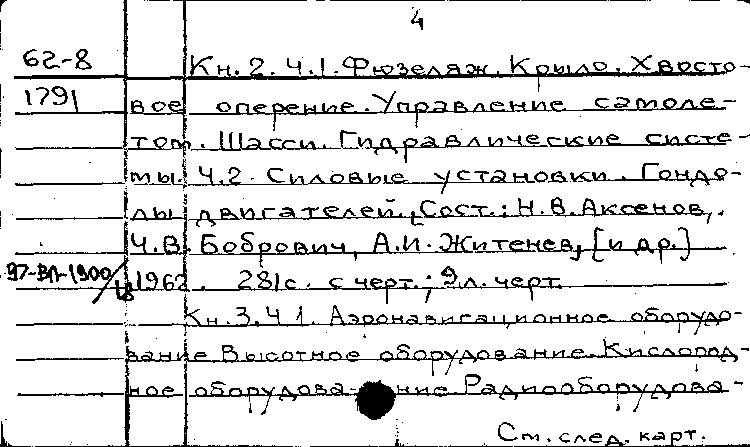 4
62-8 Кн. 2. Ч.1. Фюзеляж. Крыло. Хвосто-
1791 вое оперение. Управление самоле-
том. Шасси. Гидравлические систе-
мы. Ч.2. Силовые установки. Гондо-
лы двигателей. Сост.: Н.В. Аксенов,
Ч.В. Бобрович, А.И. Житенев, [и др.]
97-ВЛ-1900/ 1962. 281с. с черт.; 9л. черт.
Кн. 3. Ч 1. Аэронавигационное оборудо-
вание Высотное оборудование. Кислород-
ное оборудование Радиооборудова-
См. след. карт.